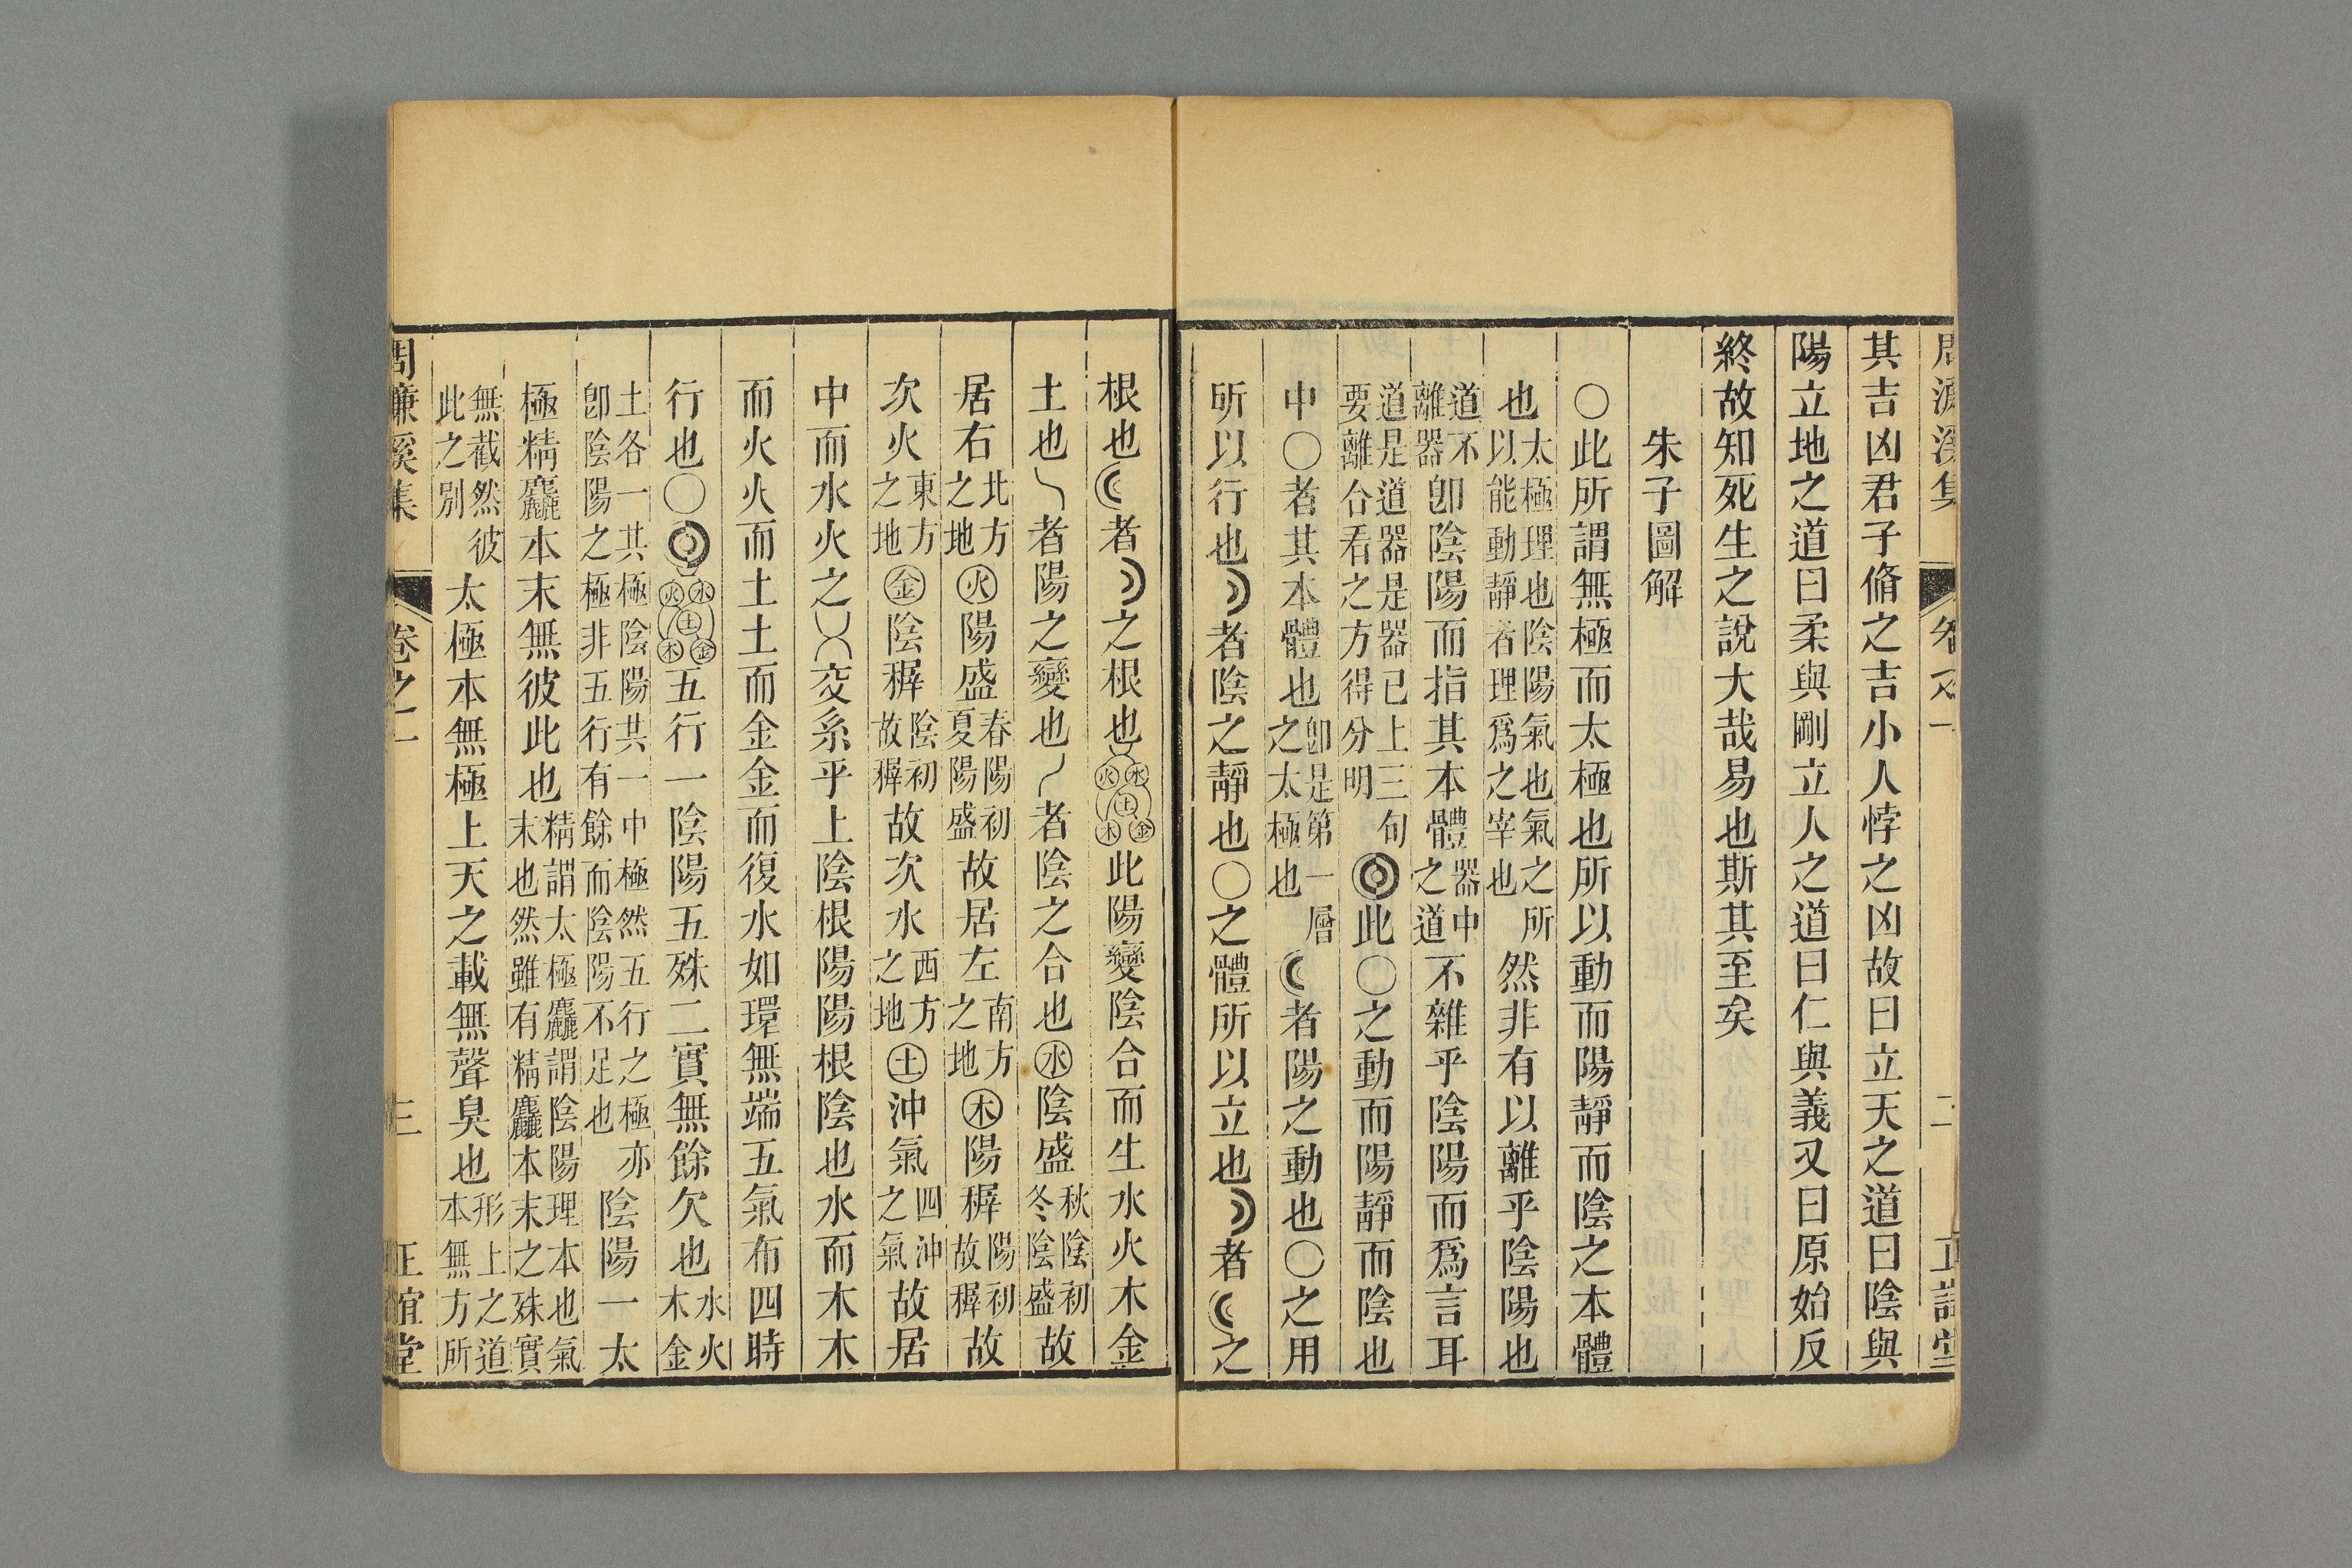 周濂溪集 卷之一 二 正誼堂
其吉凶君子脩之吉小人悖之凶故曰立天之道曰陰與
陽立地之道曰柔與剛立人之道曰仁與義又曰原始反
終故知死生之說大哉易也斯其至矣
朱子圖解
○此所謂無極而太極也所以動而陽靜而陰之本體
也太極理也陰陽氣也氣之所以能動靜者理爲之宰也然非有以離乎陰陽也
道不離器卽陰陽而指其本體器中之道不雜乎陰陽而爲言耳
道是道器是器已上三句要離合看之方得分明此○之動而陽靜而陰也
中○者其本體也卽是第一層之太極也者陽之動也○之用
所以行也者陰之靜也○之體所以立也者之
根也者之根也水火土木金此陽變陰合而生水火木金
土也者陽之變也者陰之合也水陰盛秋陰初冬陰盛故
居右北方之地火陽盛春陽初夏陽盛故居左南方之地木陽穉陽初故穉故
次火東方之地金陰穉陰初故穉故次水西方之地土沖氣四沖之氣故居
中而水火之交系乎上陰根陽陽根陰也水而木木
而火火而土土而金金而復水如環無端五氣布四時
行也○水火土木金五行一陰陽五殊二實無餘欠也水火木金
土各一其極陰陽共一中極然五行之極亦卽陰陽之極非五行有餘而陰陽不足也陰陽一太
極精麤本末無彼此也精謂太極麤謂陰陽理本也氣末也然雖有精麤本末之殊實
無截然彼此之別太極本無極上天之載無聲臭也形上之道本無方所
周濂溪集 卷之一 三 正誼堂